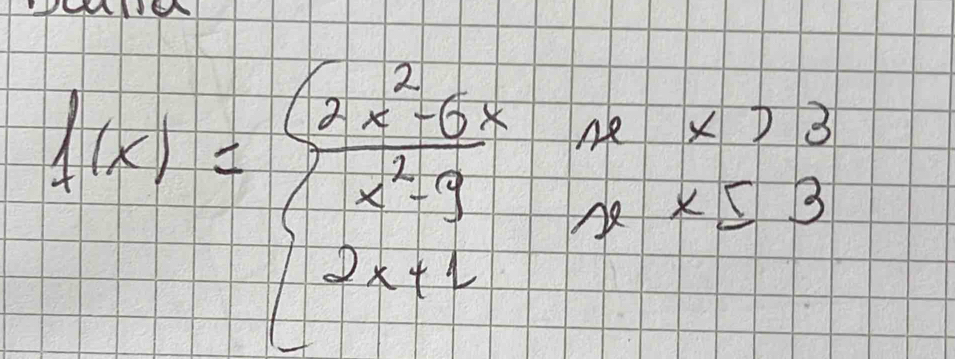 f(x) = { (2x² - 6x)/(x² - 9) se x > 3
2x + 1 se x ≤ 3